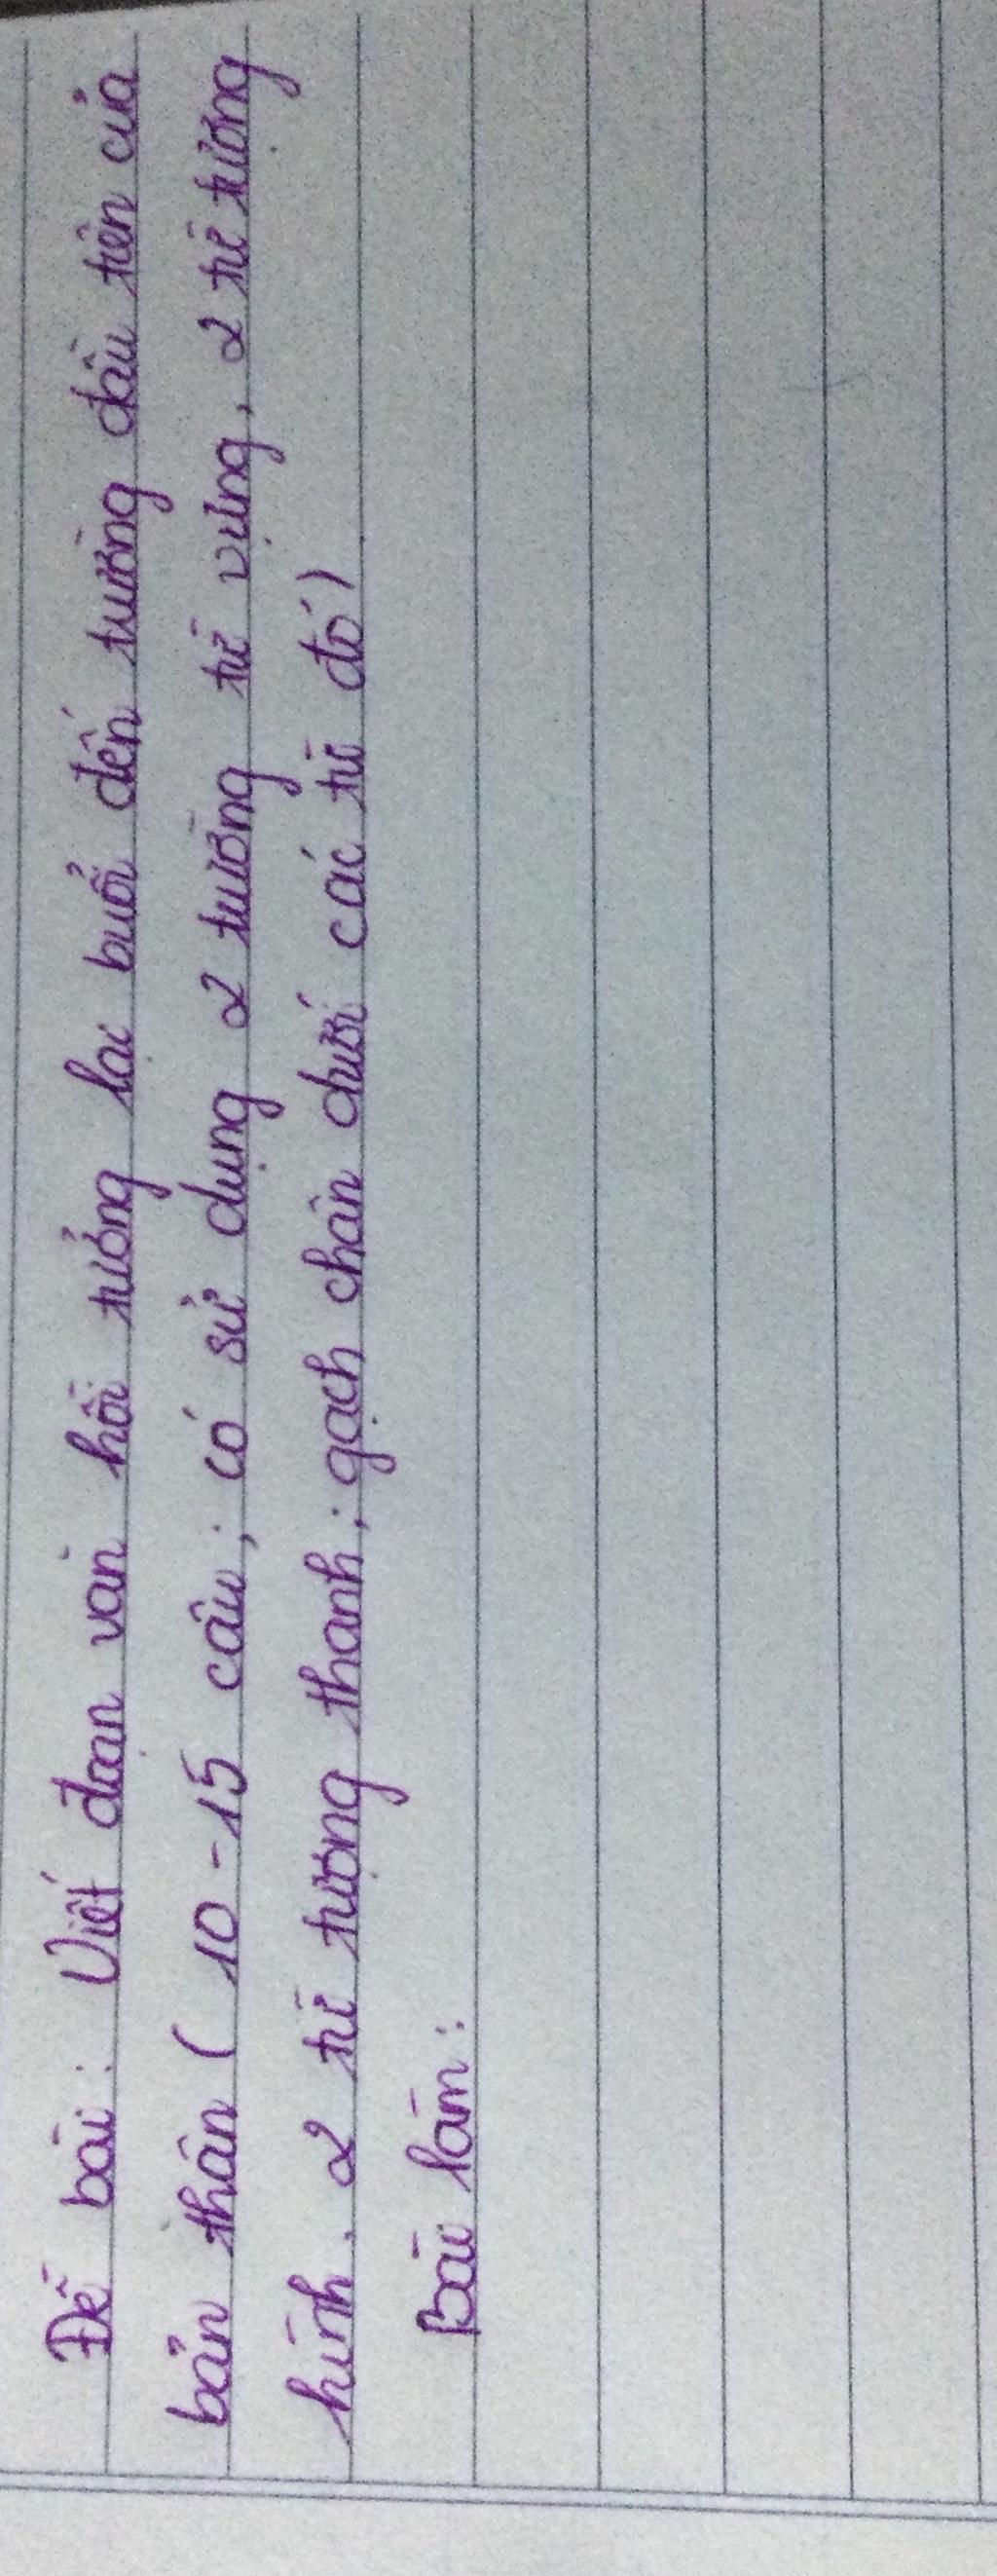 Đề bài: Viết đoạn văn hồi tưởng lại buổi đến trường đầu tiên của
bản thân (10-15 câu; có sử dụng 2 trường từ vựng, 2 từ tượng
hình, 2 từ tượng thanh; gạch chân dưới các từ đó)
Bài làm: